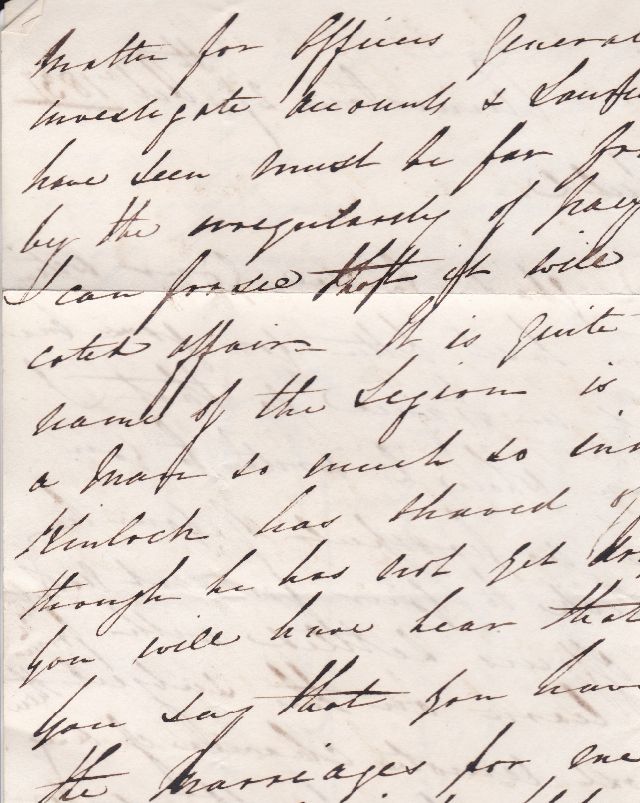 matter for Officers General
investigate accounts &
have seen must be far fro
by the irregularity of pay
I can forsee that it will
cated affair It is quite
name of the Legion is
a man so much so in
Kinloch has shaved of
though he has not yet
You will have hear that
You say that you have
the marriages for me